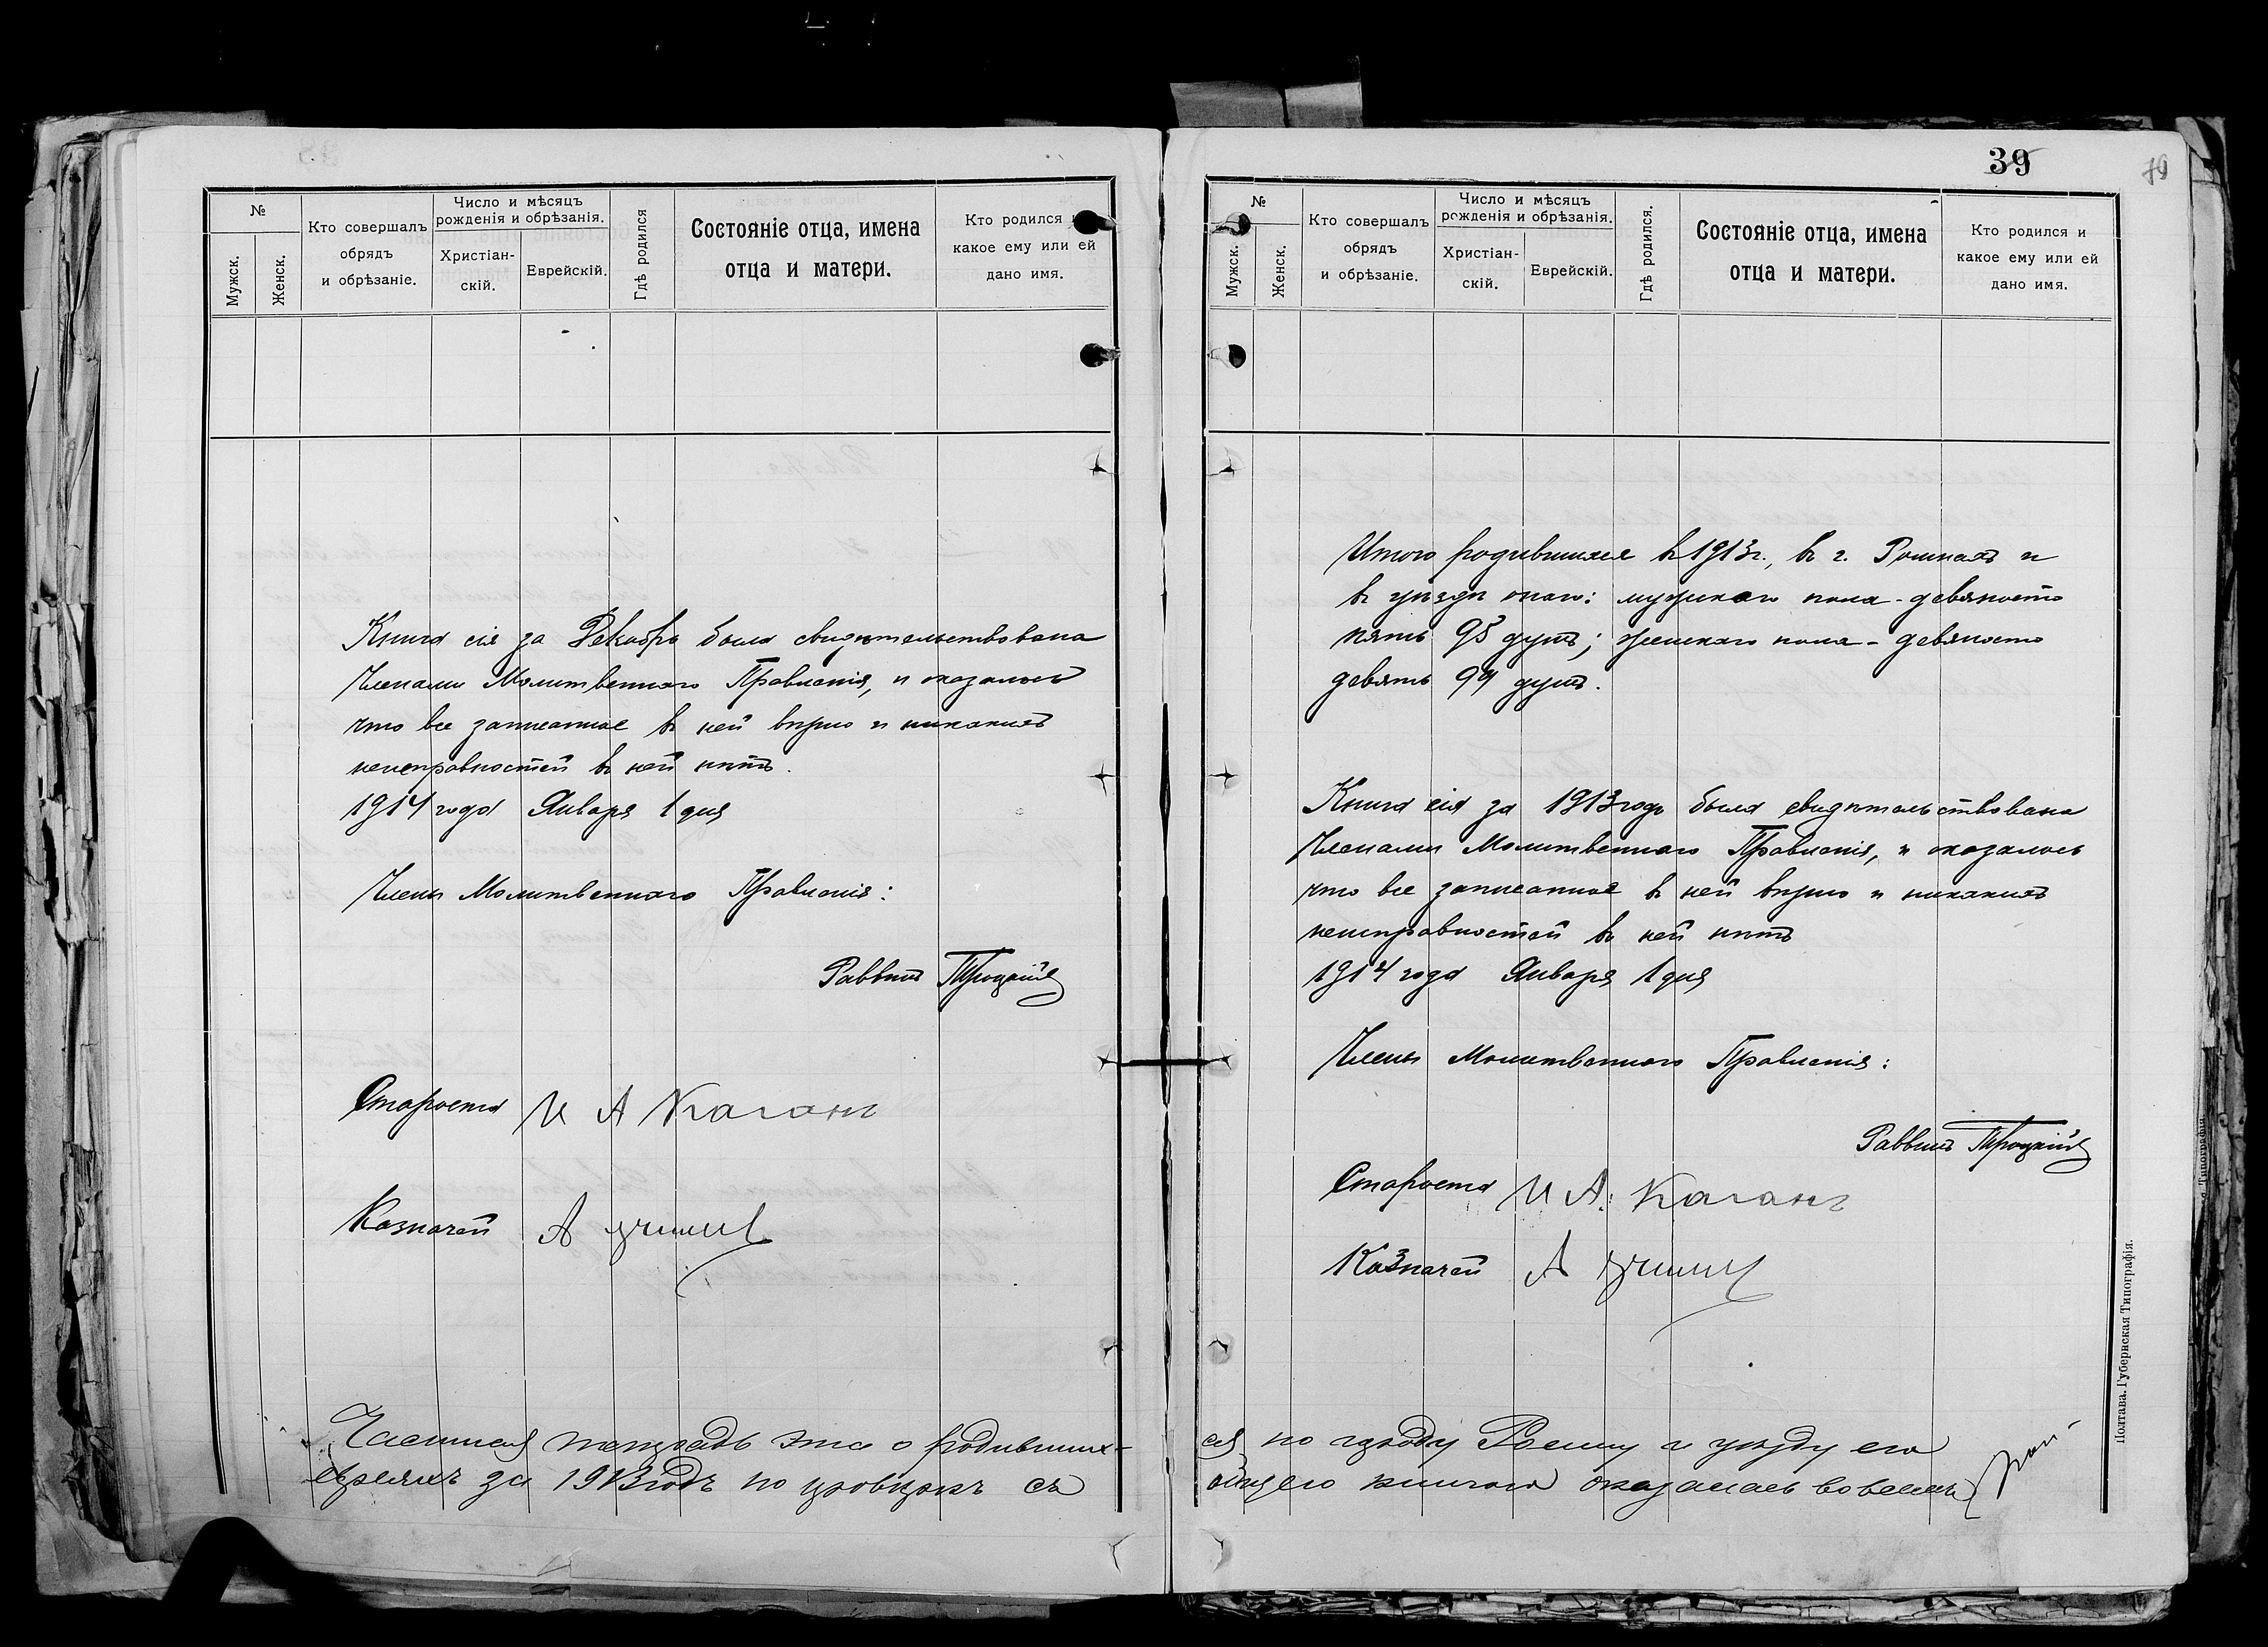 №
Мужск.
Женск.
Кто совершалъ
обрядъ
и обрѣзаніе.
Число и мѣсяцъ
рожденія и обрѣзанія.
Христіан-
скій.
Еврейскій.
Гдѣ родился
Состояніе отца, имена
отца и матери.
Кто родился
какое ему или ей
дано имя.
Книга сія за Декабрь была свидѣтельствована
Членами Молитвеннаго Правленія, и оказалось
что все записанное въ ней вѣрно и никакихъ
неисправностей въ ней нѣтъ.
1914 года Января 1 дня
Члены Молитвеннаго Правленія:
Раввинъ Троцкій
Староста И А Каганъ
Казначей А
тетрадь эта о родивших-
евреяхъ за 1913 годъ по провѣркѣ съ
39
№
Мужск.
Женск.
Кто совершалъ
обрядъ
и обрѣзаніе.
Число и мѣсяцъ
рожденія и обрѣзанія.
Христіан-
скій.
Еврейскій.
Гдѣ родился.
Состояніе отца, имена
отца и матери.
Кто родился и
какое ему или ей
дано имя.
Итого родившихся въ 1913 г., въ г. Ромнахъ и
въ уѣздѣ онаго: мужскаго пола - девяносто
пять 95 душъ; женскаго пола - девяносто
девять 99 душъ.
Книга сія за 1913 годъ была свидѣтельствована
Членами Молитвеннаго Правленія, и оказалось
что все записанное въ ней вѣрно и никакихъ
неисправностей въ ней нѣтъ
1914 года Января 1 дня
Члены Молитвеннаго Правленія:
Раввинъ Троцкій
Староста И А. Каганъ
Казначей А
ся по городу Ромну и уѣзду его
книгою оказалась во всемъ
Полтава. Губернская Типографія.